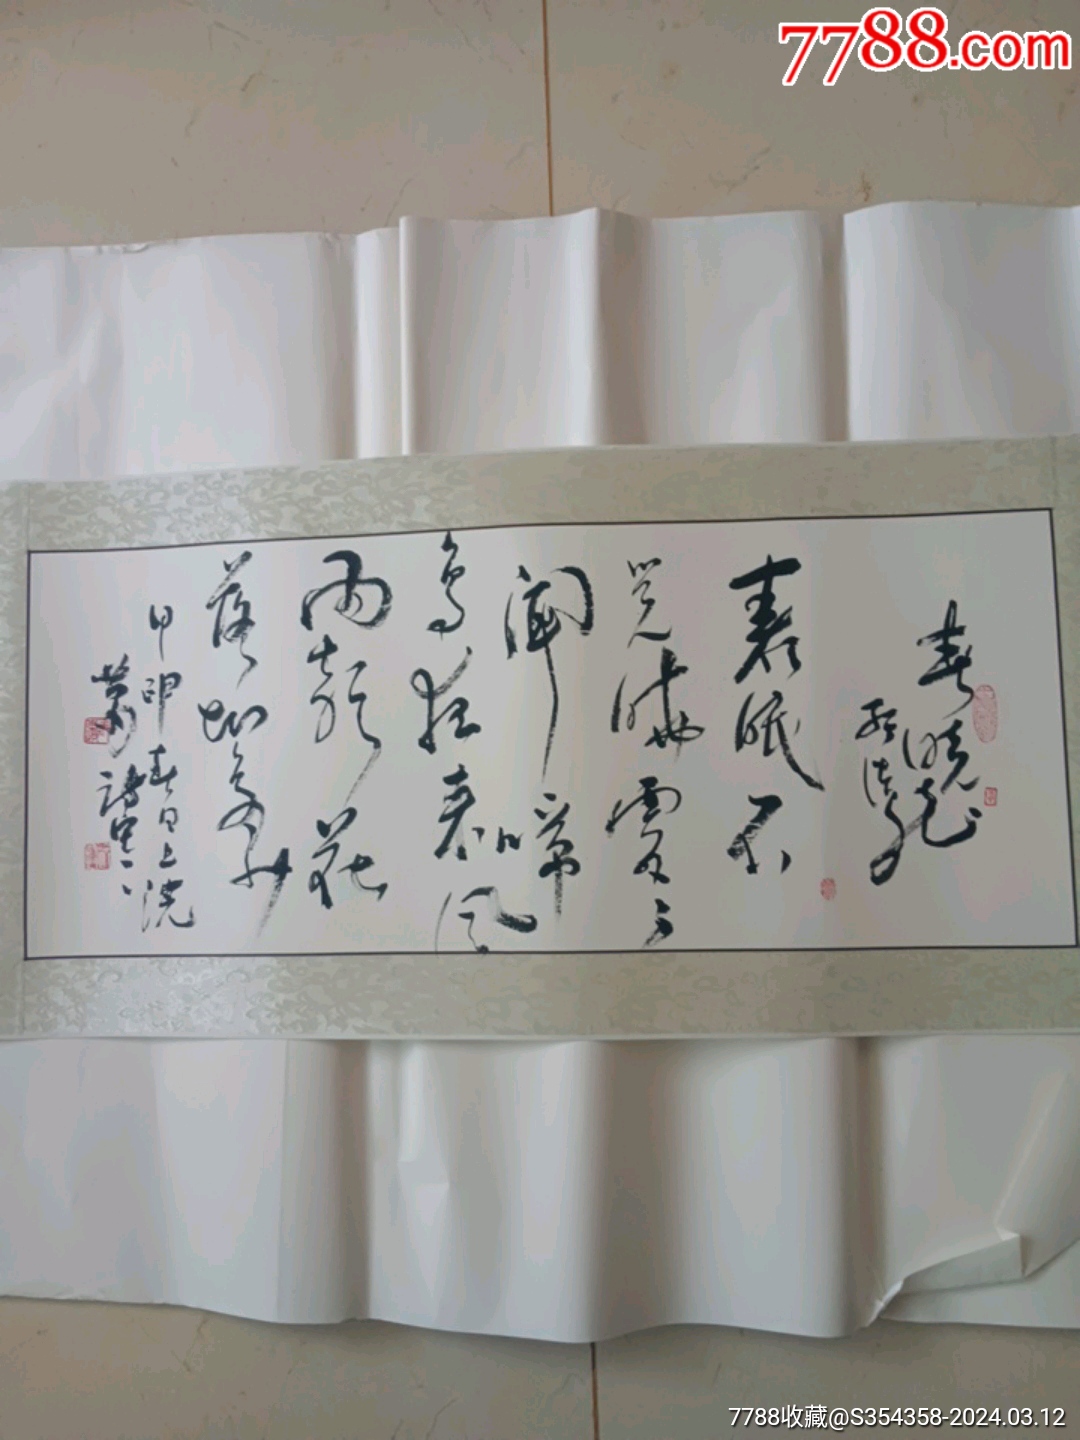 7788.com
春晓
春眠不
觉晓處々
闻啼
鸟夜来风
雨聲花
落知多少
甲申春日上浣
7788收藏@S354358-2024.03.12